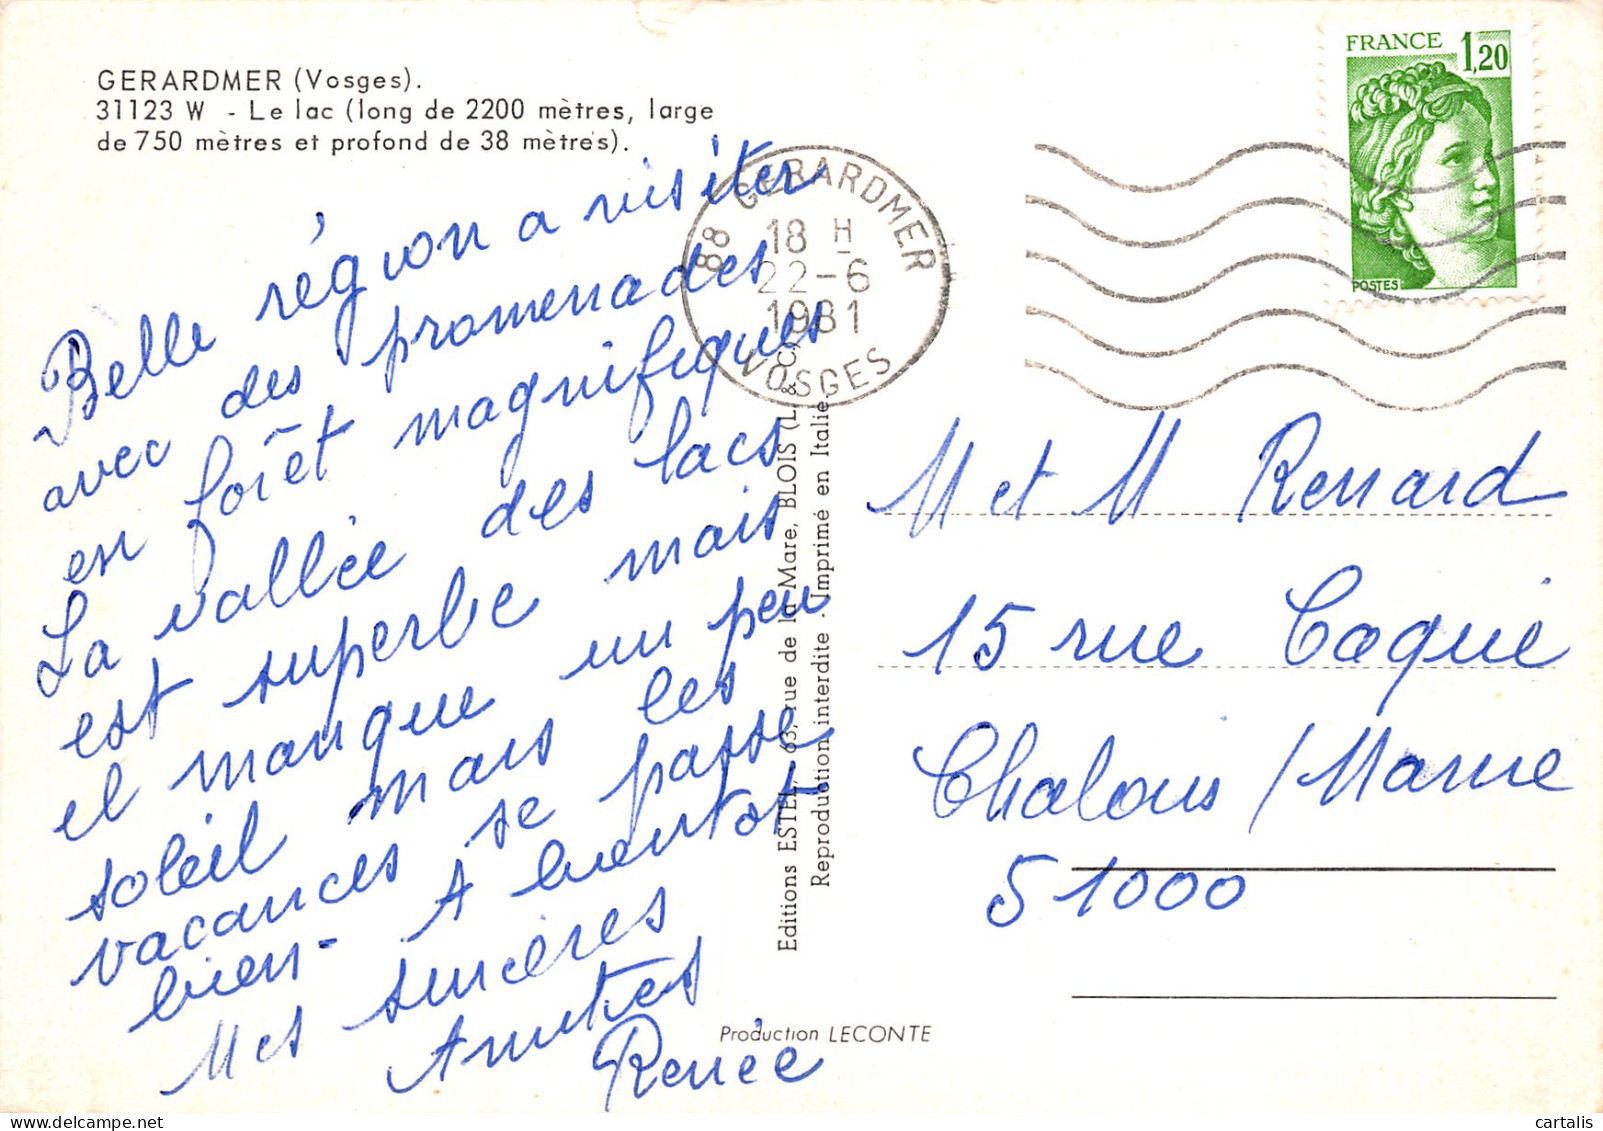 GERARDMER (Vosges).
31123 W - Le lac (long de 2200 mètres, large
de 750 mètres et profond de 38 mètres).
Belle région a visiter
avec des promenades
en forêt magnifiques
La vallée des lacs
est superbe mais
el manque un peu
soleil mais les
vacances se passe
bien - A bientot
Mes sincères
Amitiés
Renée
88 GERARDMER
18 H
22-6
1981
VOSGES
FRANCE 1,20
POSTES
Editions ESTEL - 63, rue de la Mare, BLOIS (L. & C.)
Reproduction interdite - Imprimé en Italie.
Production LECONTE
M et M Renard
15 rue Coquié
Chalons / Marne
51000
cartalis